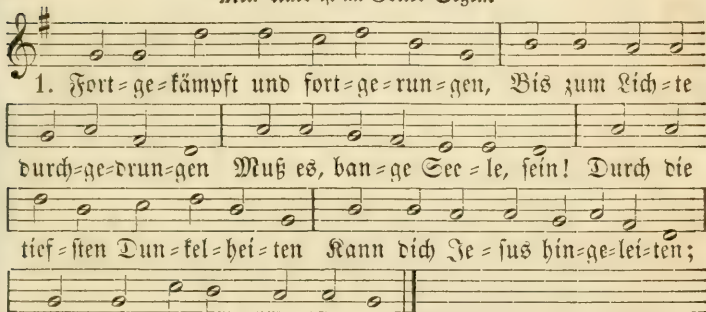 1. Fort=ge=kämpft und fort=ge=run=gen, Bis zum Lich=te
durch=ge=drun=gen Muß es, ban=ge See=le, sein! Durch die
tief=sten Dun=kel=hei=ten Kann dich Je=sus hin=ge=lei=ten;